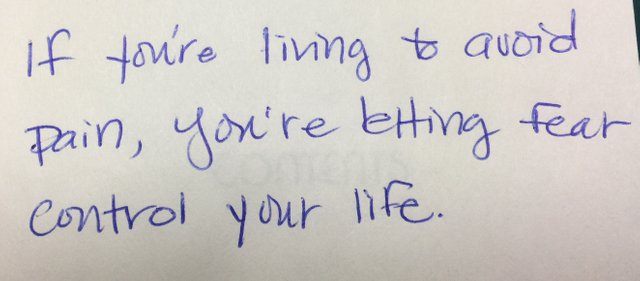 If you're living to avoid
pain, you're letting fear
control your life.